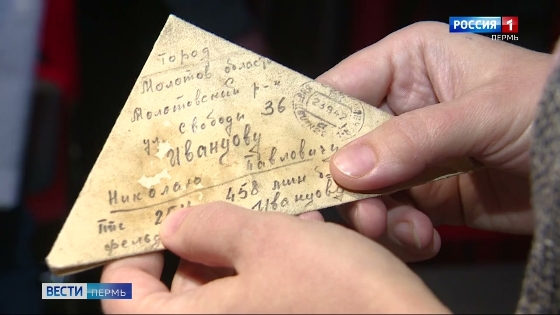 РОССИЯ 1
ПЕРМЬ
Город
Молотов област
Молотовский р-н
ул. Свободы 36
Иванцову
Николаю Павловичу
458 мин
Иванцову
фельд
ВЕСТИ ПЕРМЬ